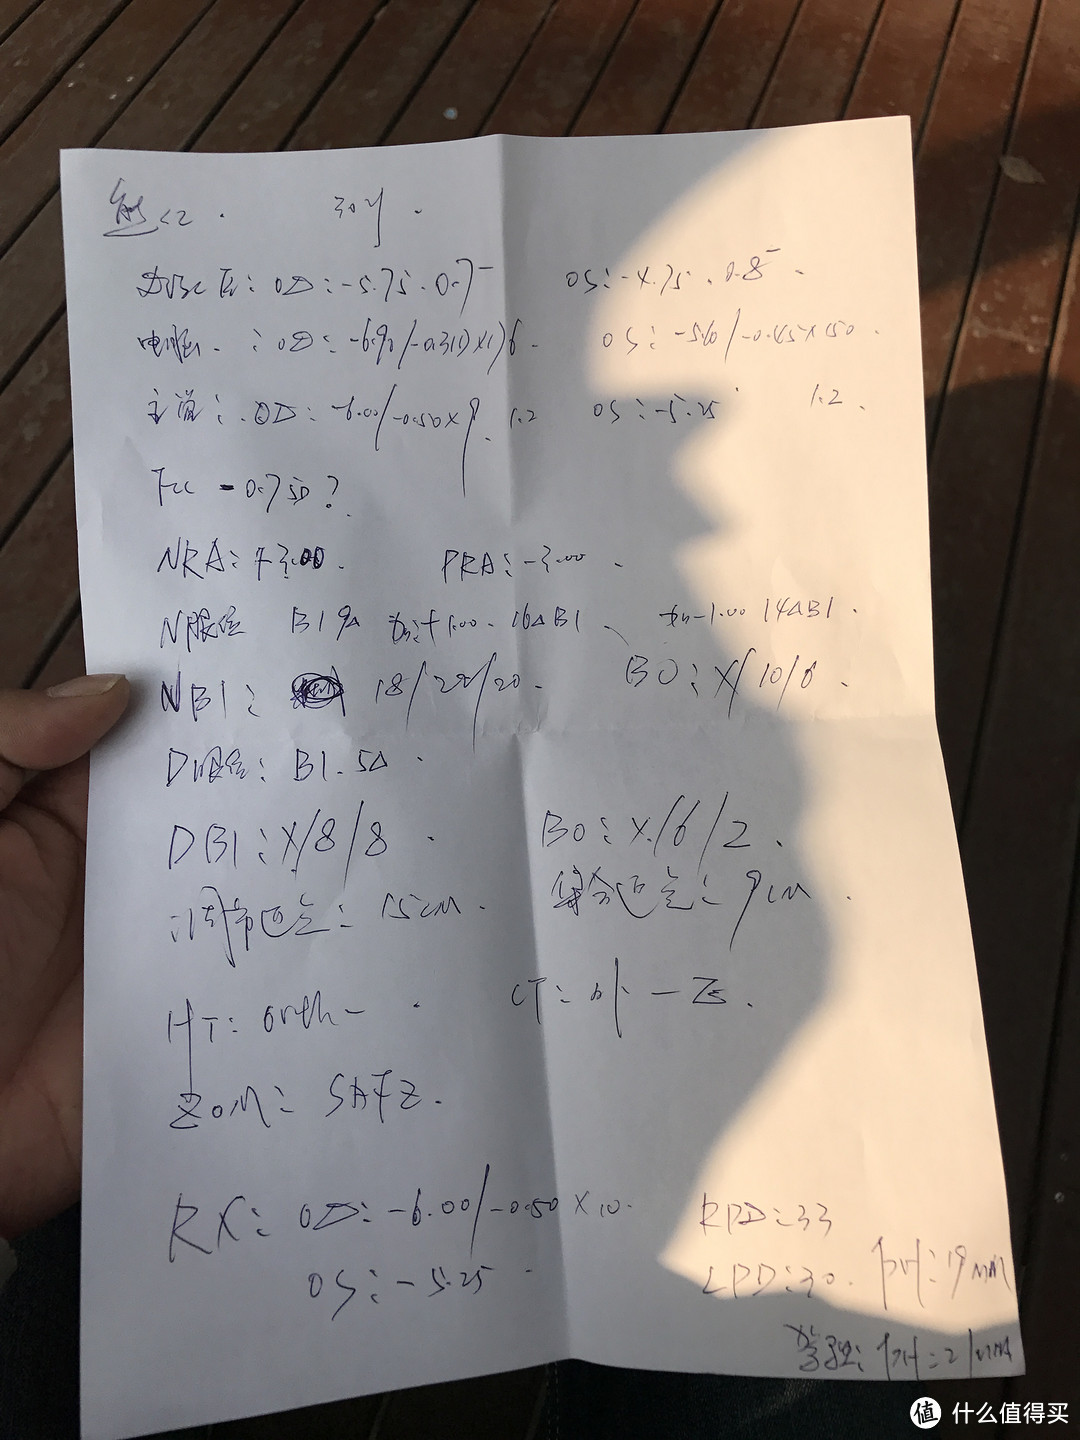 30岁.
OD:-5.75.0.7⁻ OS:-4.75.0.8⁻.
电脑.:OD:-6.90/-0.31)×176. OS:-5.60/-0.45×150.
主觉:.OD:-6.00/-0.50×9.1.2 OS:-5.25 1.2.
Fcc -0.75D?
NRA:+3.00. PRA:-3.00.
N眼位 BI 9△ +1.00.16△BI. -1.00 14△BI.
NBI: 18/22/20. BO:X/10/6.
D眼位:BI.5△.
DBI:X/8/8. BO:X/6/2.
调节近点:15cm. 集合近点:9cm.
HT:orth- . CT:外-正.
ZOM:SAFZ.
RX:OD:-6.00/-0.50×10. RPD:33
OS:-5.25. LPD:30. PH:19mm
PH:21mm
值 什么值得买